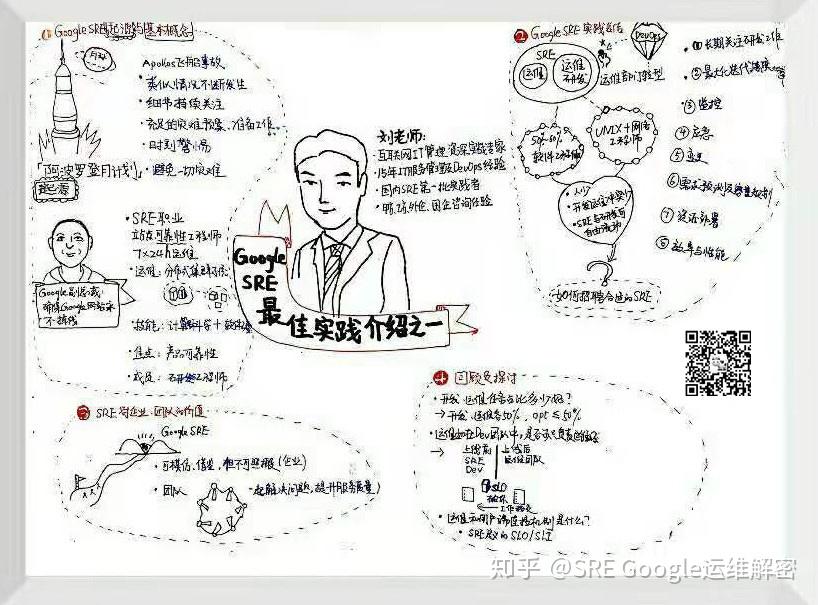 ① Google SRE起源与基本概念
月球
Apollos飞船事故
• 类似情况不断发生
• 细节持续关注
• 充足的灾难预案、准备工作
• 时刻警惕
• 避免一切灾难
「阿波罗登月计划」
起源
• SRE职业
站点可靠性工程师
7×24h运维
• 运维：分布式集群
Google副总裁
确保Google网站永
不掉线
• 技能：计算机科学+
• 焦点：产品可靠性
• 成员：
刘老师：
• 互联网IT管理资深实践专家
• 15年IT服务管理及DevOps经验
• 国内SRE第一批实践者
• 外企、国企咨询经验
Google
SRE
最佳实践介绍之一
② Google SRE 实践
DevOps
SRE
运维
运维
研发
运维部门转型
50%-60%
软件工程师
UNIX+网络
工程师
• 人少
• 开发运维冲突少
• SRE与研发
自由流动
?
如何招聘合适的SRE
① 长期关注研发工作
② 最大化迭代速度
③ 监控
④ 应急
⑤ 变更
⑥ 需求预测及容量规划
⑦ 资源部署
⑧ 效率与性能
③ SRE对企业、团队的价值
Google SRE
• 可模仿、借鉴，但不可照搬（企业）
• 团队
一起解决问题，提升服务质量）
④ 回顾及探讨
• 开发、运维任务占比多少好？
→ 开发、运维各50%，ops≤50%
• 运维加在Dev团队中，是否
→ 上线前
SRE
DEV
上线后
运维团队
SLO
工作
• 运维和用户端连接机制是什么？
• SRE定义的SLO/SLI
知乎 @SRE Google运维解密